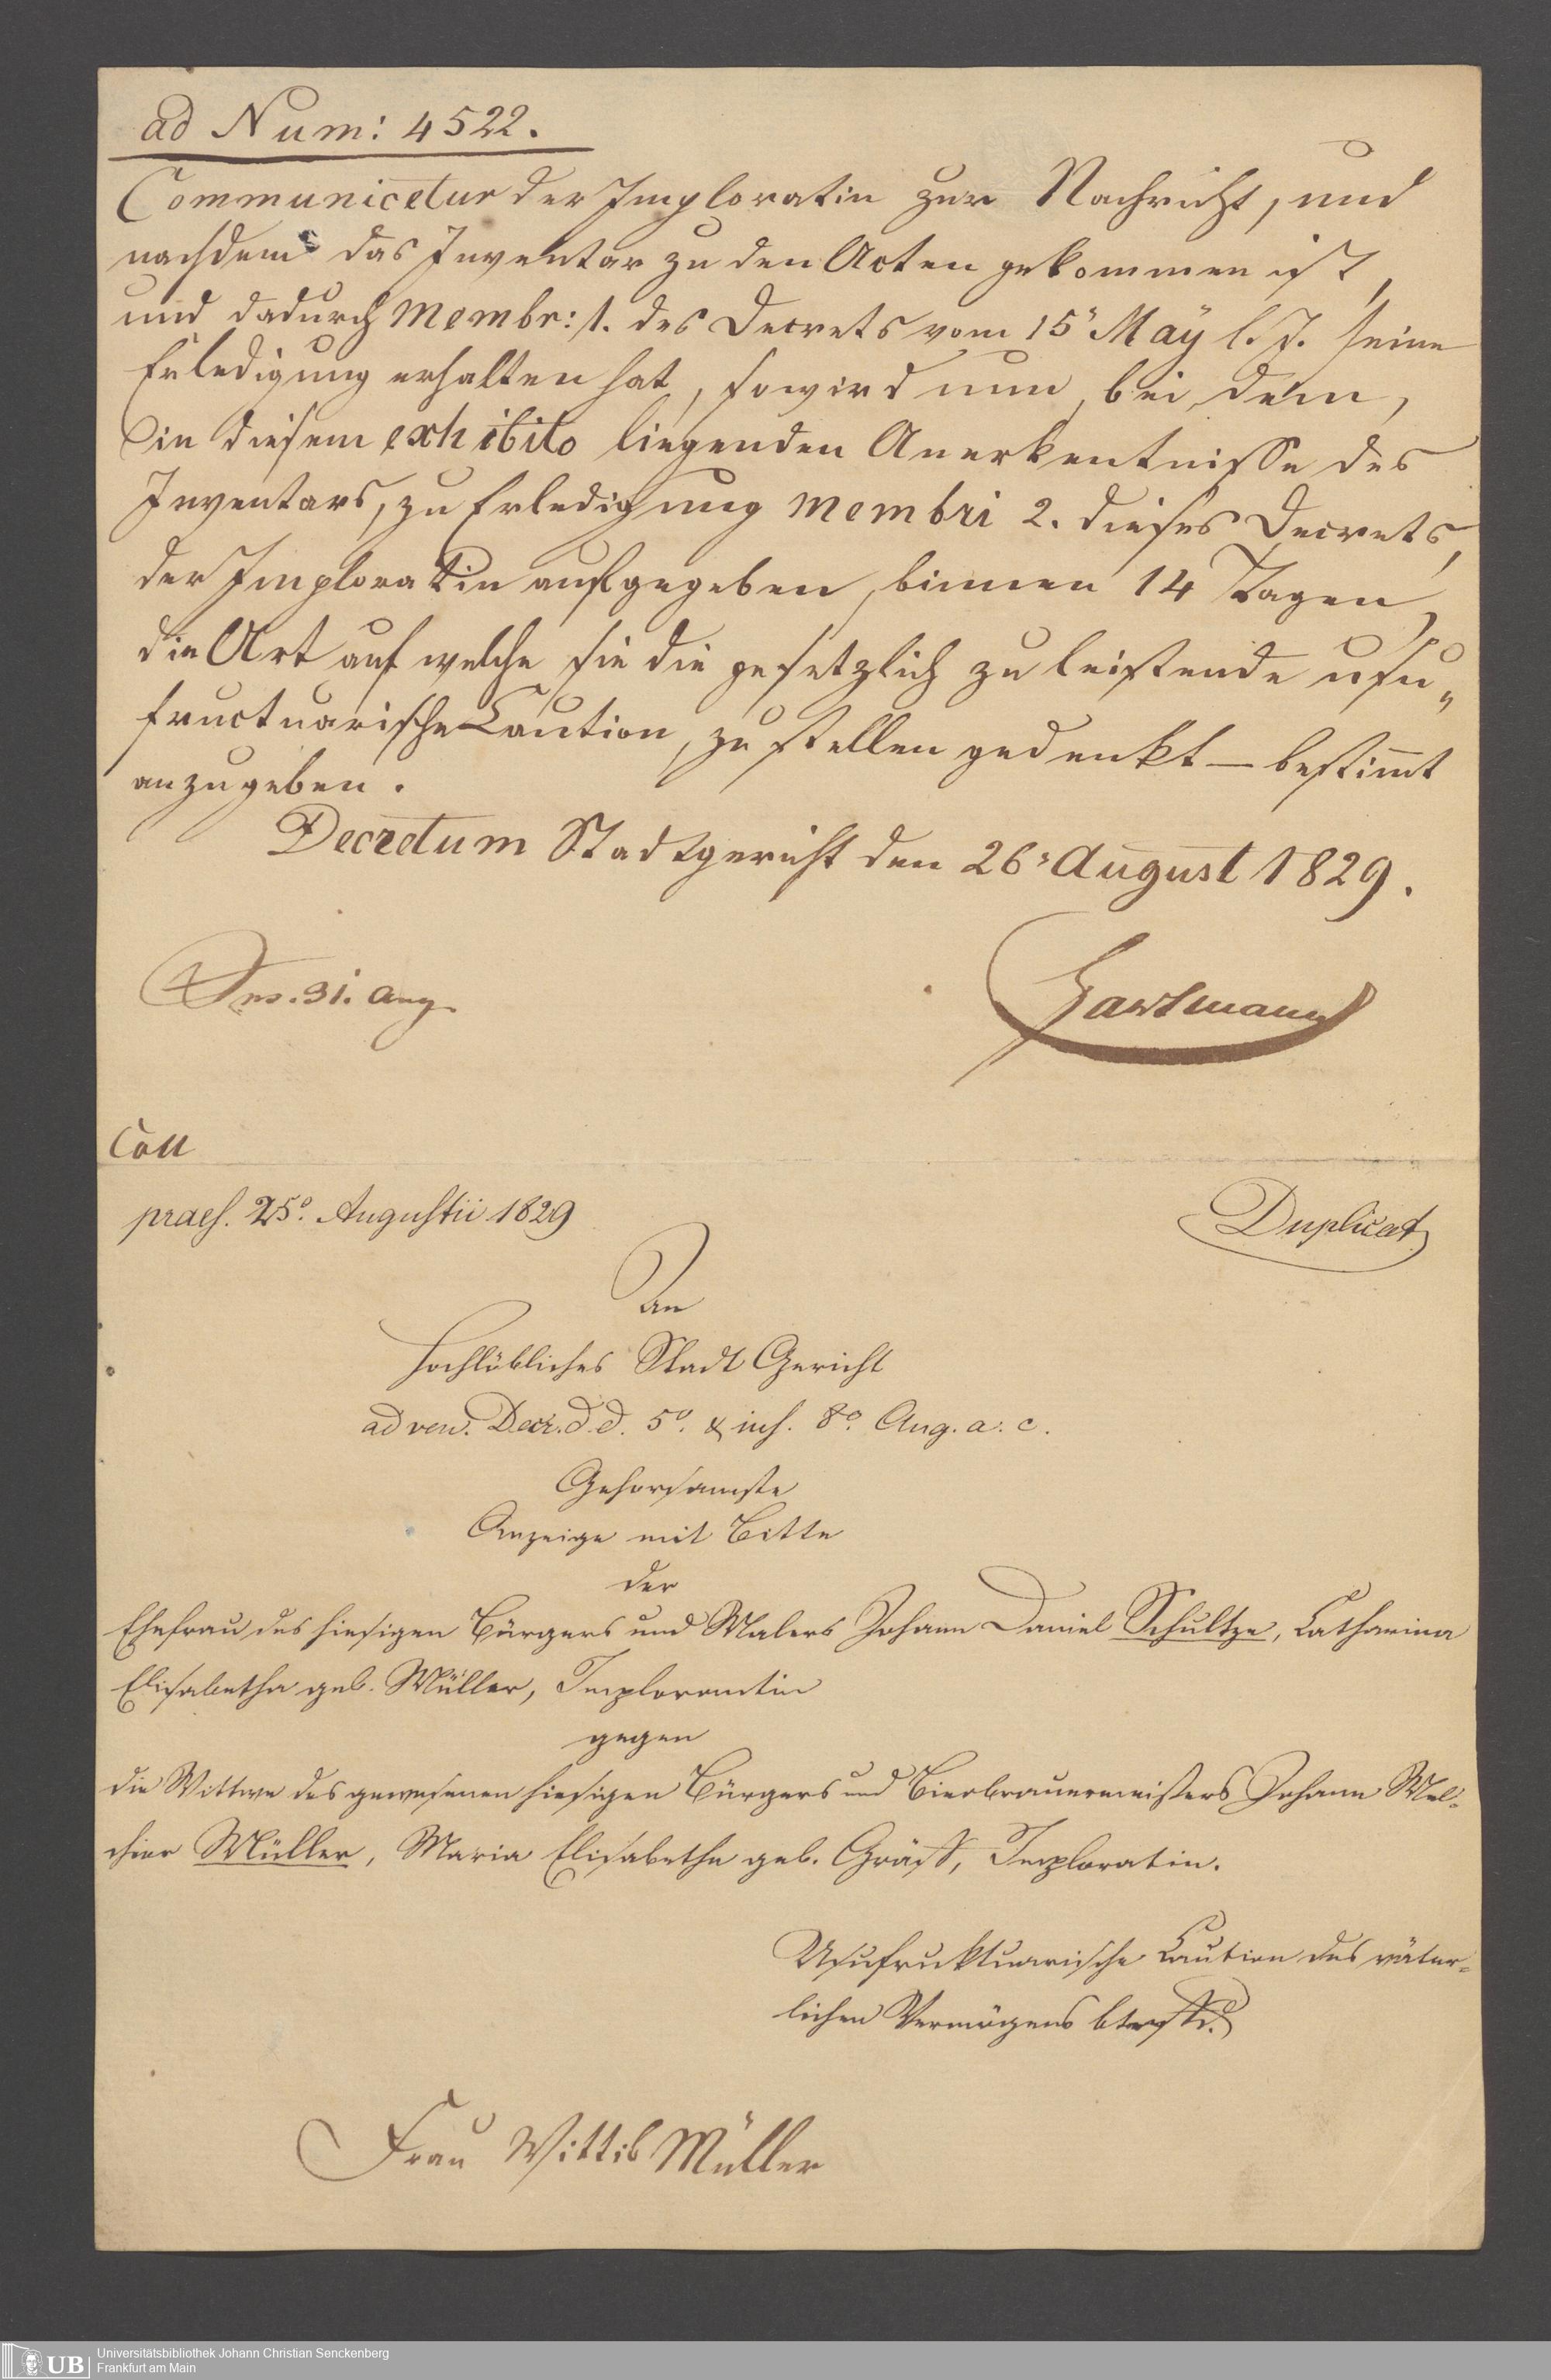 ad Num: 4522.
Communicetur der Imploratin zur Nachricht, und
nachdem das Inventar zu den Acten gekommen ist,
und dadurch Membr: 1. des Decrets vom 15ʳ May l. J. seine
Erledigung erhalten hat, so wird nun, bei dem,
in diesem exhibito liegenden Anerkentnisse des
Inventars, zu Erledigung membri 2. dieses Decrets,
der Imploratin aufgegeben, binnen 14 Tagen,
die Art auf welche sie die gesetzlich zu leistende usu„
fructuarische Caution, zu stellen gedenkt — bestim̄t
anzugeben.
Decretum Stadtgericht den 26ʳ August 1829.
Ins. 31. Aug.
Hartmann
Coll
praes. 25º. Augustii 1829
Duplicat
An
Hochlöbliches Stadt Gericht
ad ven. Decr. d. d. 5º. & ins. 8º. Aug. a. c.
Gehorsamste
Anzeige mit Bitte
der
Ehefrau des hiesigen Bürgers und Malers Johann Daniel Schultze, Catharina
Elisabetha geb. Müller, Implorantin
gegen
die Wittwe des gewesenen hiesigen Bürgers und Bierbrauermeisters Johann Mel-
chior Müller, Maria Elisabetha geb. Gräff, Imploratin.
Usufruktuarische Caution des väter-
lichen Vermögens
Frau Wittib Müller
UB
Universitätsbibliothek Johann Christian Senckenberg
Frankfurt am Main